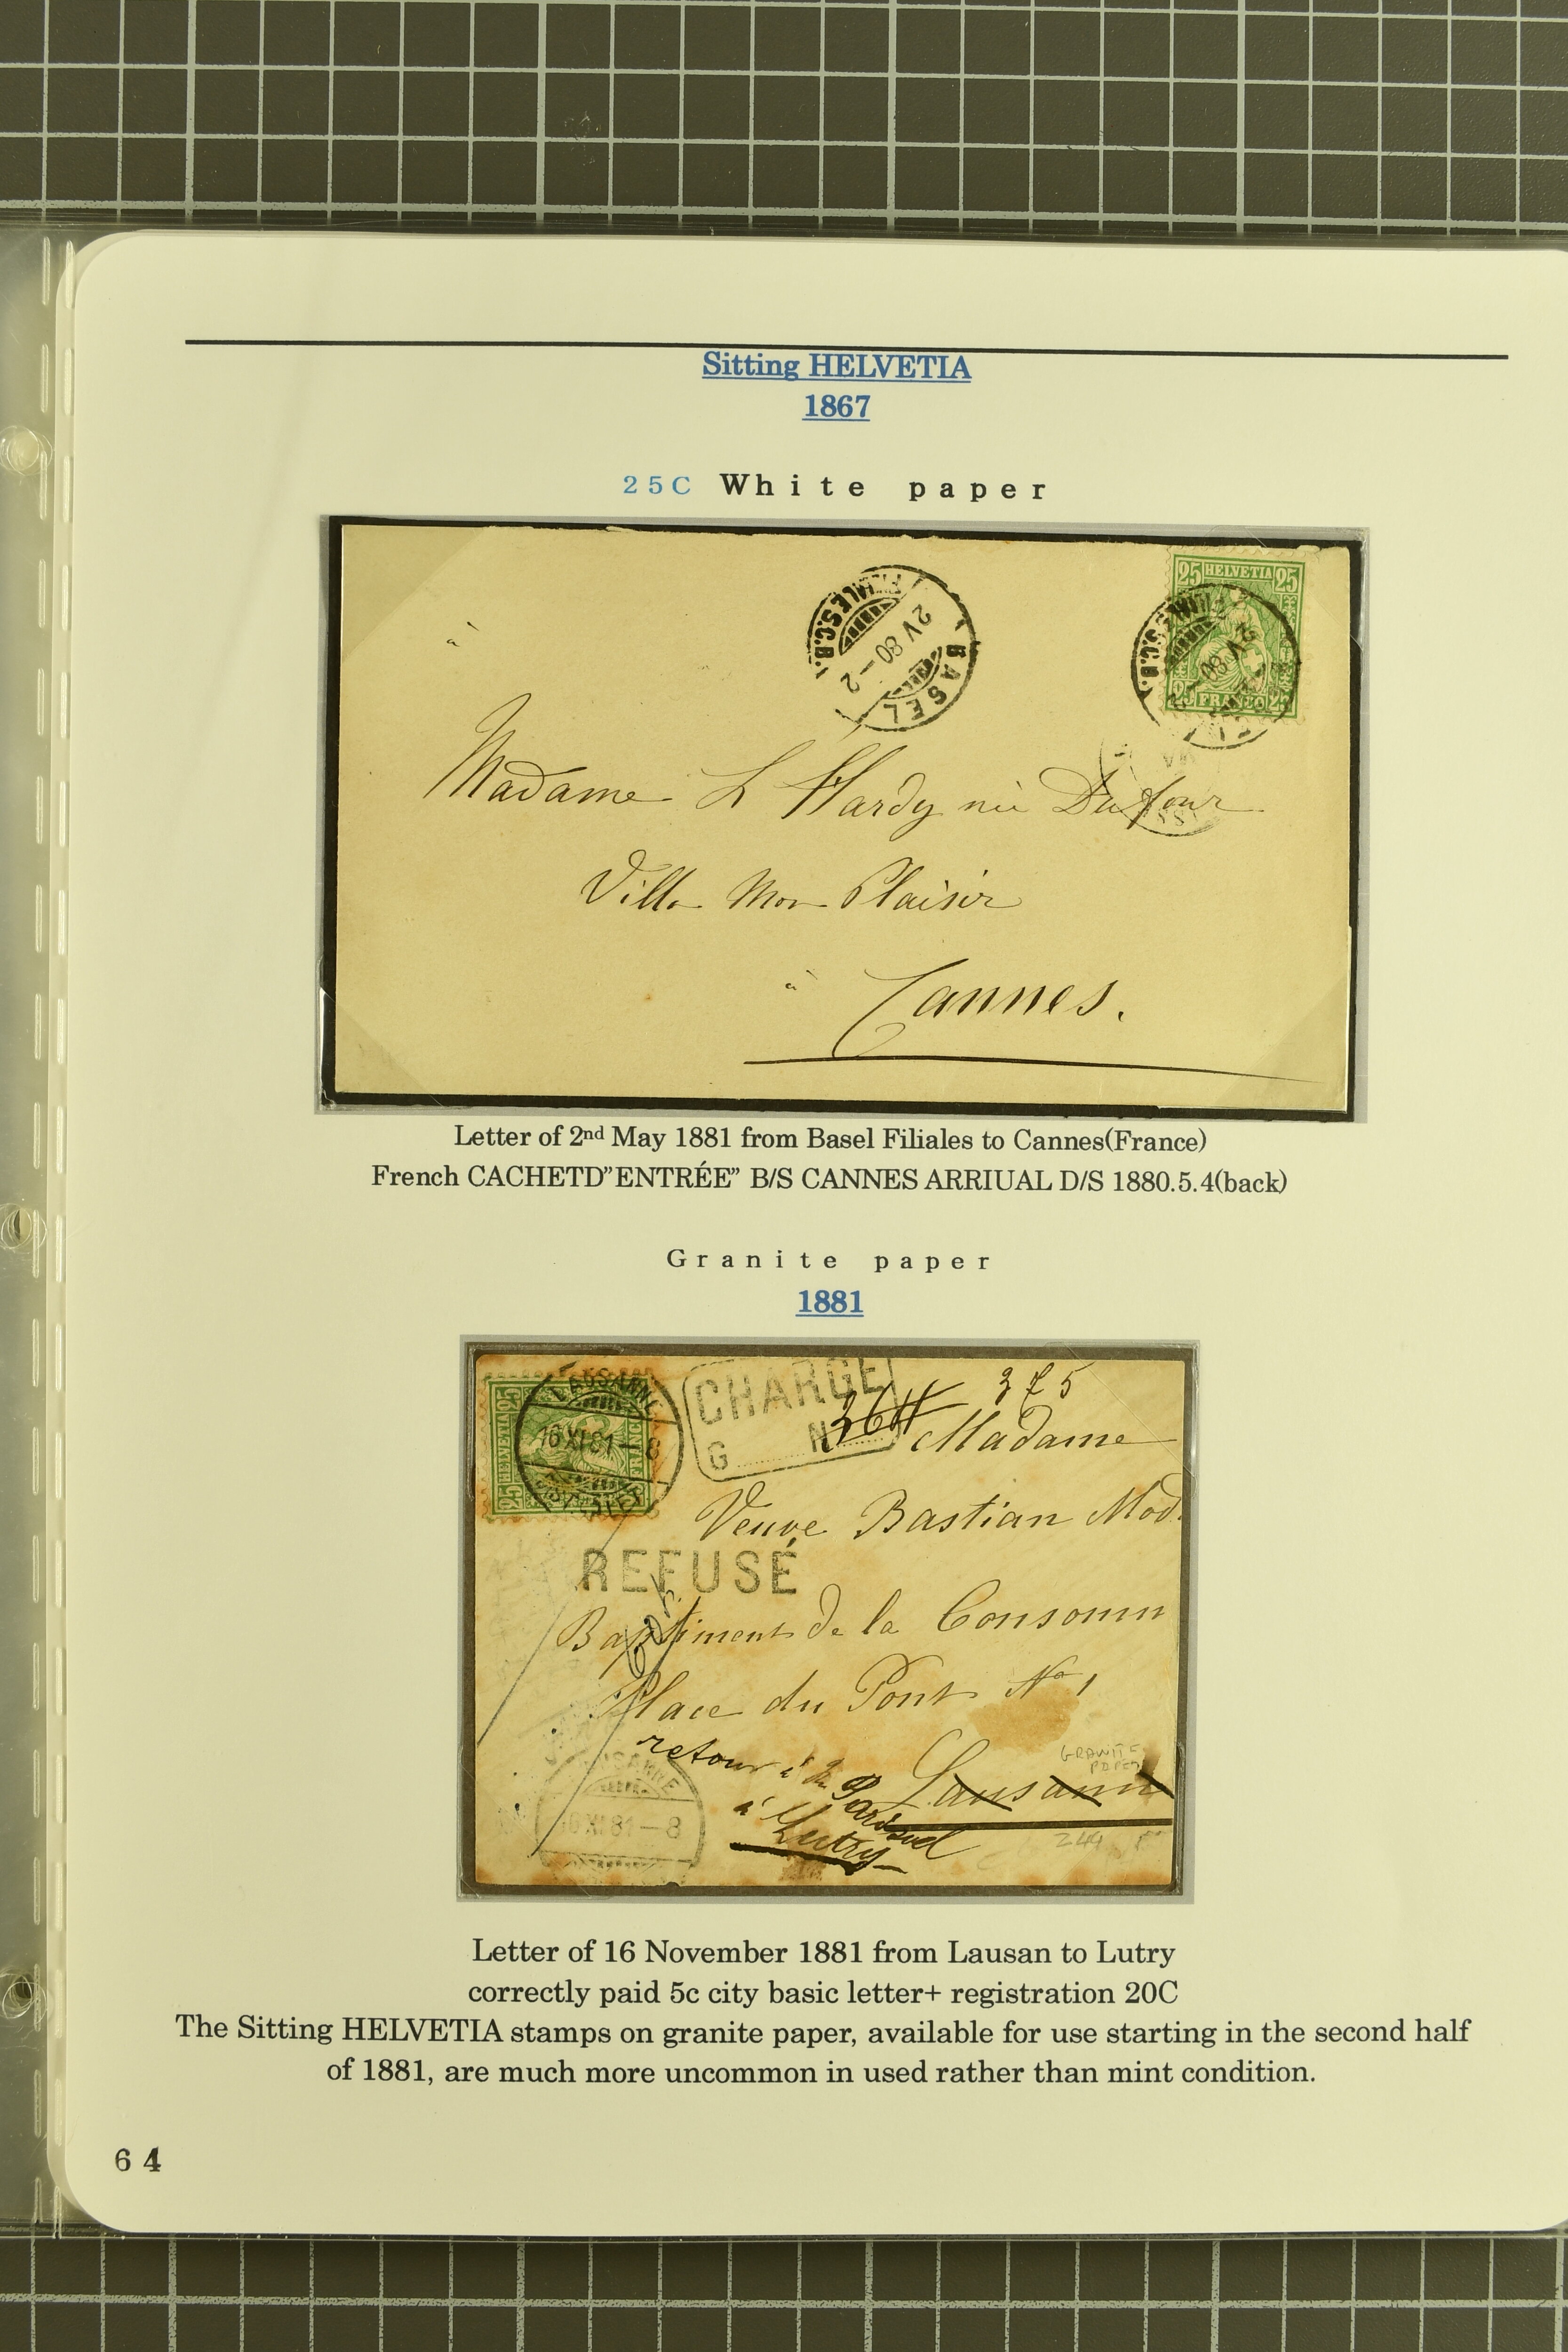 Sitting HELVETIA
1867
25C White paper
25 HELVETIA 25
FRANCO
BASEL
2 V 80 - 2
FILIALE S.C.B.
Madame L Hardy née Dufour
Villa Mon Plaisir
à Cannes.
Letter of 2nd May 1881 from Basel Filiales to Cannes(France)
French CACHETD”ENTRÉE” B/S CANNES ARRIUAL D/S 1880.5.4(back)
Granite paper
1881
LAUSANNE
16 XI 81 - 8
CHARGE
G N
264
375
Madame
Veuve Bastian Mod.
REFUSÉ
Baptiment de la Consomm
Place du Pont No 1
retour à
Lausanne
à Lutry
GRANITE
PAPER
244
LAUSANNE
16 XI 81 - 8
Letter of 16 November 1881 from Lausan to Lutry
correctly paid 5c city basic letter+ registration 20C
The Sitting HELVETIA stamps on granite paper, available for use starting in the second half
of 1881, are much more uncommon in used rather than mint condition.
64